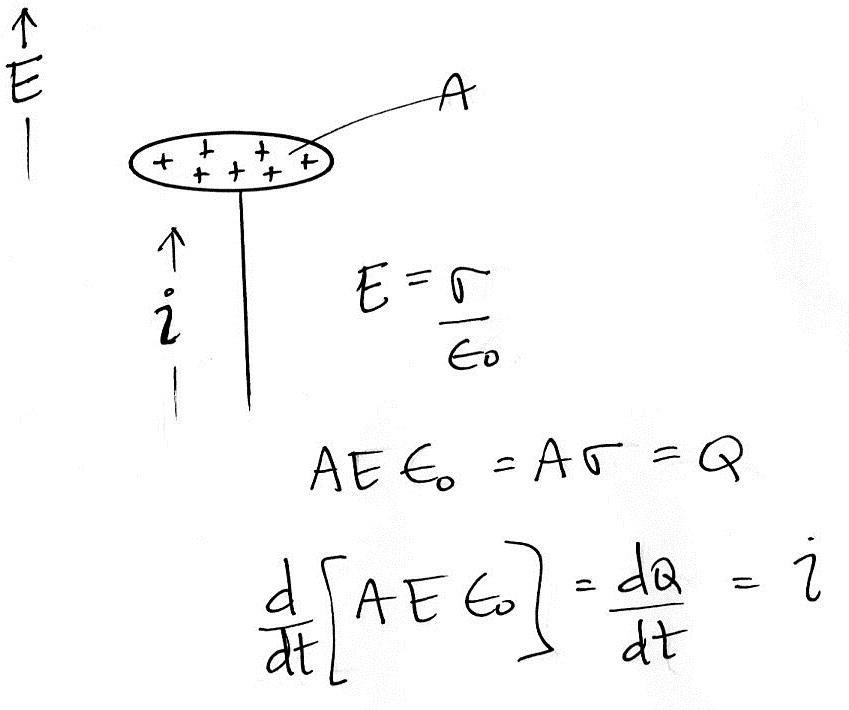 E
A
+ + + + + + + +
i
E = σ/ϵ₀
A E ϵ₀ = A σ = Q
d/dt [A E ϵ₀] = dQ/dt = i